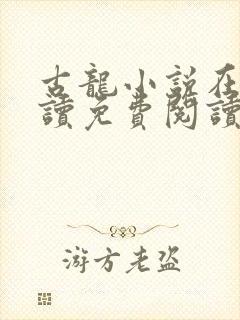 古龍小說在
讀免費閱讀
游方老盜